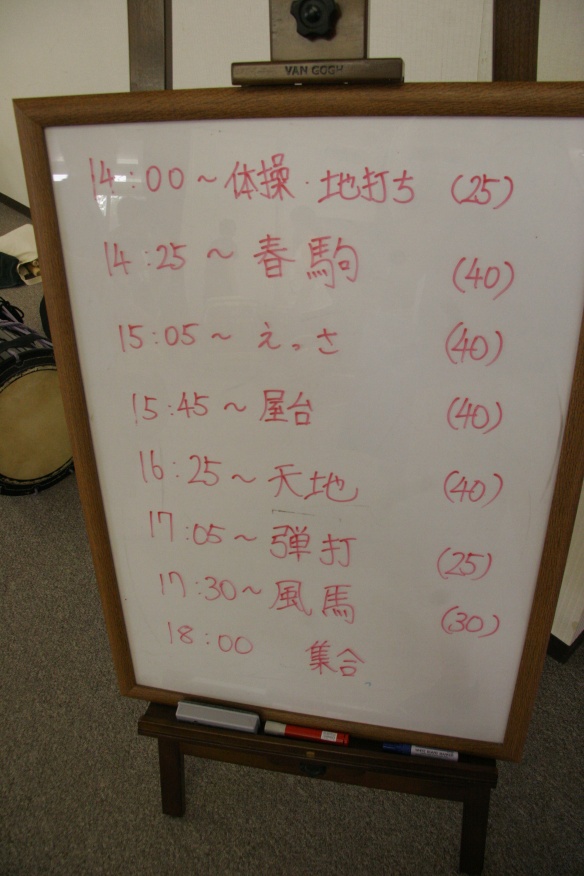 VAN GOGH
14:00～体操・地打ち (25)
14:25～春駒 (40)
15:05～えっさ (40)
15:45～屋台 (40)
16:25～天地 (40)
17:05～弾打 (25)
17:30～風馬 (30)
18:00 集合